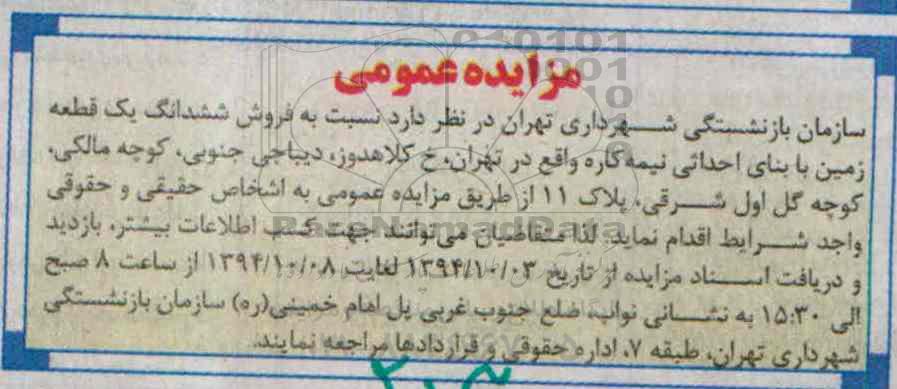 مزایده عمومی
سازمان بازنشستگی شهرداری تهران در نظر دارد نسبت به فروش ششدانگ یک قطعه
زمین با بنای احداثی نیمه کاره واقع در تهران، خ کلاهدوز، دیباجی جنوبی، کوچه مالکی،
کوچه گل اول شرقی، پلاک ۱۱ از طریق مزایده عمومی به اشخاص حقیقی و حقوقی
واجد شرایط اقدام نماید، لذا متقاضیان می‌توانند جهت کسب اطلاعات بیشتر، بازدید
و دریافت اسناد مزایده از تاریخ ۱۳۹۴/۱۰/۰۳ لغایت ۱۳۹۴/۱۰/۰۸ از ساعت ۸ صبح
الی ۱۵:۳۰ به نشانی نواب، ضلع جنوب غربی پل امام خمینی(ره) سازمان بازنشستگی
شهرداری تهران، طبقه ۷، اداره حقوقی و قراردادها مراجعه نمایند.
ParsNamadData